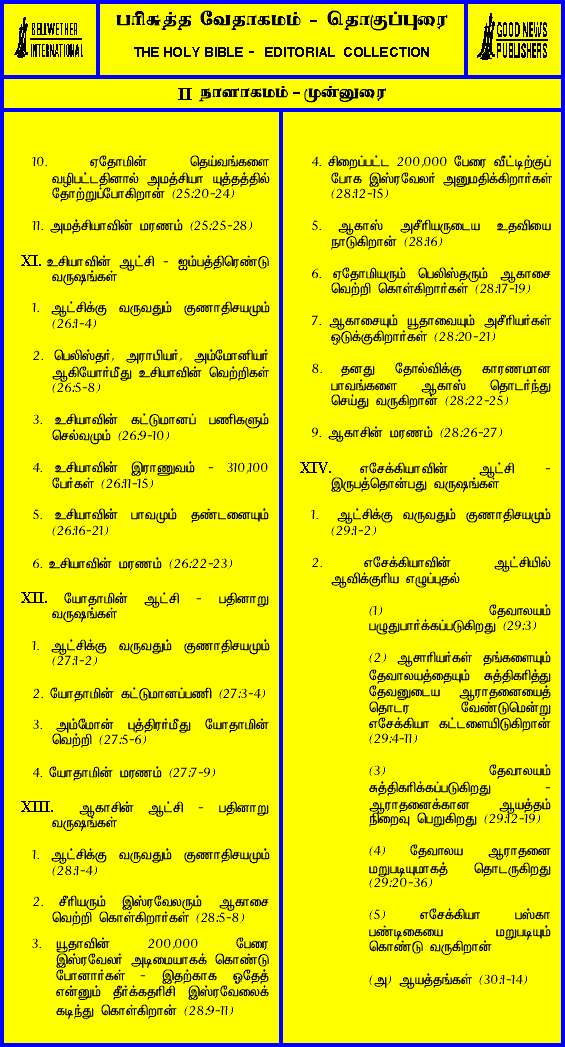 BELLWETHER
INTERNATIONAL
பரிசுத்த வேதாகமம் – தொகுப்புரை
THE HOLY BIBLE - EDITORIAL COLLECTION
GOOD NEWS
PUBLISHERS
II நாளாகமம் – முன்னுரை
10. ஏதோமின் தெய்வங்களை
வழிபட்டதினால் அமத்சியா யுத்தத்தில்
தோற்றுப்போகிறான் (25:20-24)
11. அமத்சியாவின் மரணம் (25:25-28)
XI. உசியாவின் ஆட்சி - ஐம்பத்திரெண்டு
வருஷங்கள்
1. ஆட்சிக்கு வருவதும் குணாதிசயமும்
(26:1-4)
2. பெலிஸ்தர், அராபியர், அம்மோனியர்
ஆகியோர்மீது உசியாவின் வெற்றிகள்
(26:5-8)
3. உசியாவின் கட்டுமானப் பணிகளும்
செல்வமும் (26:9-10)
4. உசியாவின் இராணுவம் - 310,100
பேர்கள் (26:11-15)
5. உசியாவின் பாவமும் தண்டனையும்
(26:16-21)
6. உசியாவின் மரணம் (26:22-23)
XII. யோதாமின் ஆட்சி - பதினாறு
வருஷங்கள்
1. ஆட்சிக்கு வருவதும் குணாதிசயமும்
(27:1-2)
2. யோதாமின் கட்டுமானப்பணி (27:3-4)
3. அம்மோன் புத்திரர்மீது யோதாமின்
வெற்றி (27:5-6)
4. யோதாமின் மரணம் (27:7-9)
XIII. ஆகாசின் ஆட்சி - பதினாறு
வருஷங்கள்
1. ஆட்சிக்கு வருவதும் குணாதிசயமும்
(28:1-4)
2. சீரியரும் இஸ்ரவேலரும் ஆகாசை
வெற்றி கொள்கிறார்கள் (28:5-8)
3. யூதாவின் 200,000 பேரை
இஸ்ரவேலர் அடிமையாகக் கொண்டு
போனார்கள் - இதற்காக ஓதேத்
என்னும் தீர்க்கதரிசி இஸ்ரவேலைக்
கடிந்து கொள்கிறான் (28:9-11)
4. சிறைப்பட்ட 200,000 பேரை வீட்டிற்குப்
போக இஸ்ரவேலர் அனுமதிக்கிறார்கள்
(28:12-15)
5. ஆகாஸ் அசீரியருடைய உதவியை
நாடுகிறான் (28:16)
6. ஏதோமியரும் பெலிஸ்தரும் ஆகாசை
வெற்றி கொள்கிறார்கள் (28:17-19)
7. ஆகாசையும் யூதாவையும் அசீரியர்கள்
ஒடுக்குகிறார்கள் (28:20-21)
8. தனது தோல்விக்கு காரணமான
பாவங்களை ஆகாஸ் தொடர்ந்து
செய்து வருகிறான் (28:22-25)
9. ஆகாசின் மரணம் (28:26-27)
XIV. எசேக்கியாவின் ஆட்சி -
இருபத்தொன்பது வருஷங்கள்
1. ஆட்சிக்கு வருவதும் குணாதிசயமும்
(29:1-2)
2. எசேக்கியாவின் ஆட்சியில்
ஆவிக்குரிய எழுப்புதல்
(1) தேவாலயம்
பழுதுபார்க்கப்படுகிறது (29:3)
(2) ஆசாரியர்கள் தங்களையும்
தேவாலயத்தையும் சுத்திகரித்து
தேவனுடைய ஆராதனையைத்
தொடர வேண்டுமென்று
எசேக்கியா கட்டளையிடுகிறான்
(29:4-11)
(3) தேவாலயம்
சுத்திகரிக்கப்படுகிறது -
ஆராதனைக்கான ஆயத்தம்
நிறைவு பெறுகிறது (29:12-19)
(4) தேவாலய ஆராதனை
மறுபடியுமாகத் தொடருகிறது
(29:20-36)
(5) எசேக்கியா பஸ்கா
பண்டிகையை மறுபடியும்
கொண்டு வருகிறான்
(அ) ஆயத்தங்கள் (30:1-14)